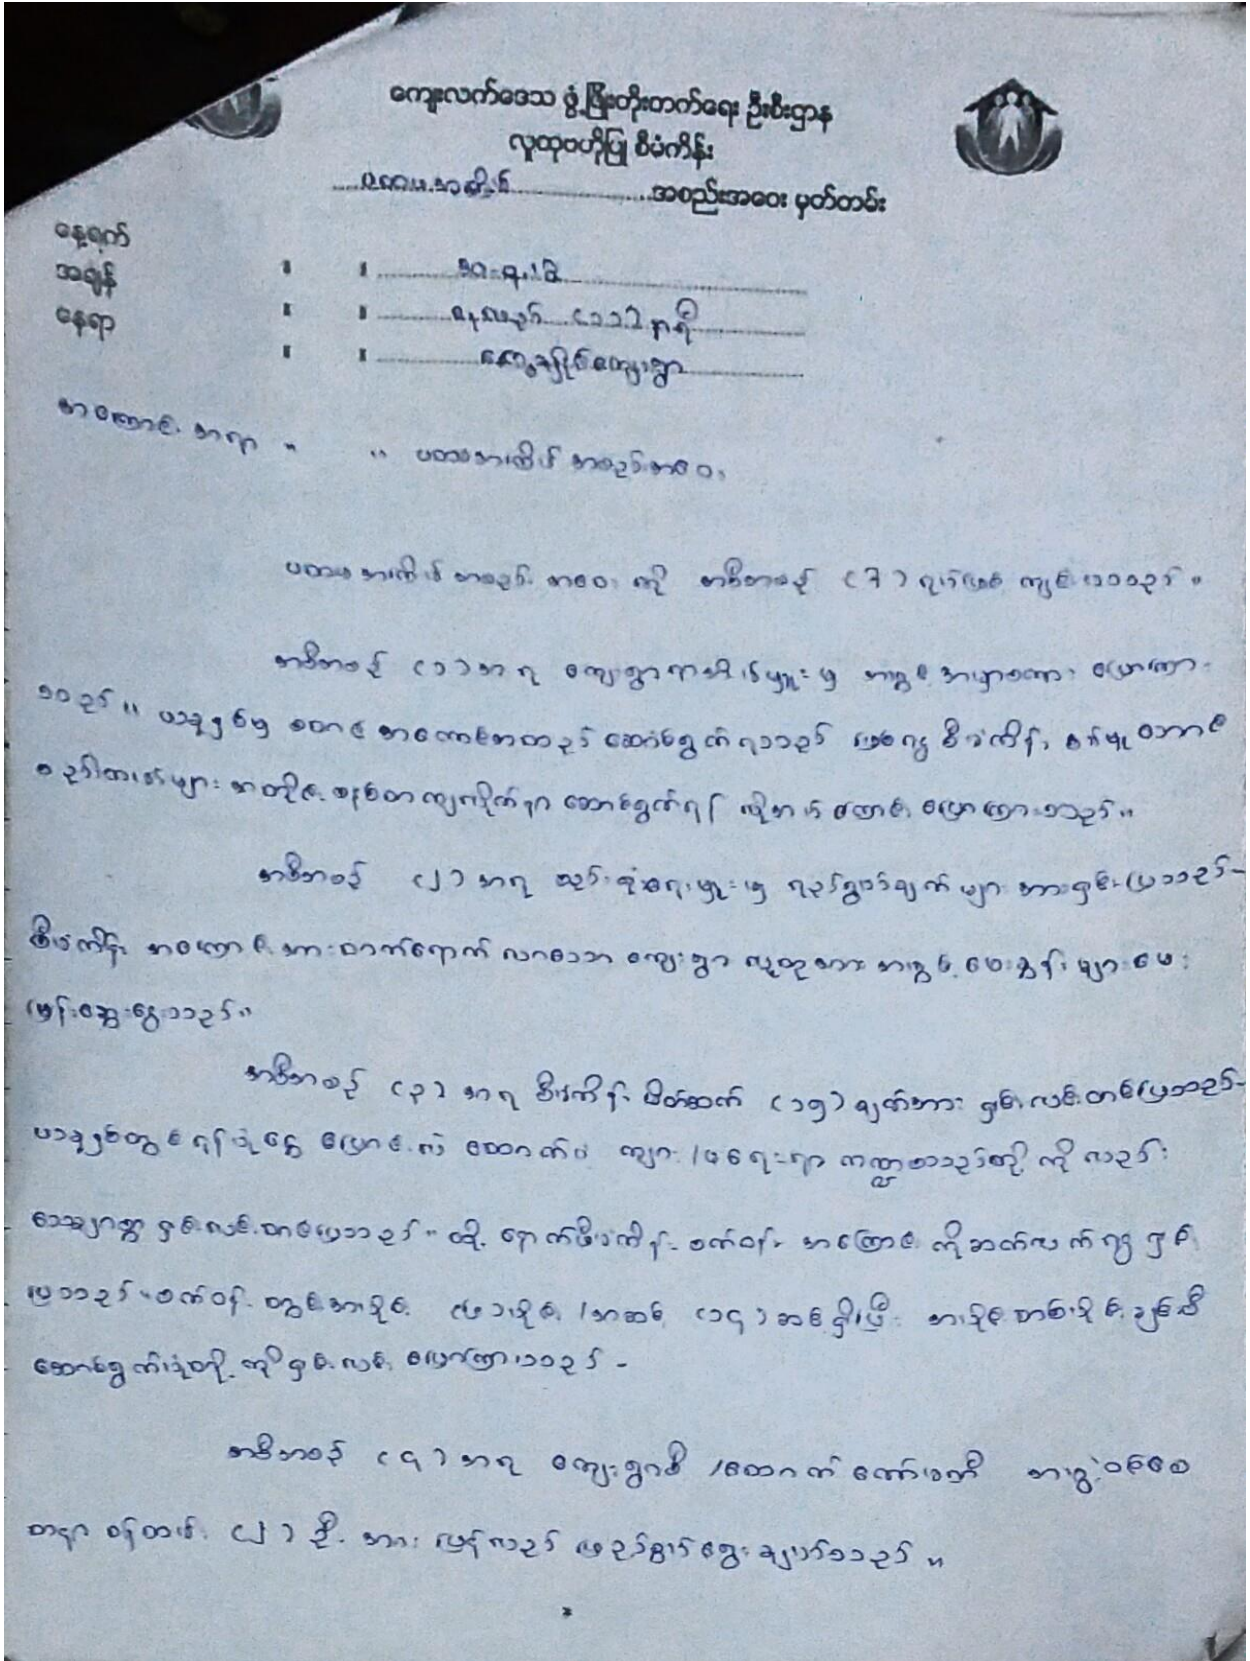 ကျေးလက်ဒေသ ဖွံ့ဖြိုးတိုးတက်ရေး ဦးစီးဌာန
လူထုဗဟိုပြု စီမံကိန်း
ပထမအကြိမ် အစည်းအဝေး မှတ်တမ်း
နေ့ရက်
အချိန် ။ ။
နေရာ ။ ။ နေ့လည် (၁၁) နာရီ
။ ။ ကျေးရွာ
အကြောင်းအရာ ။ ။ ပထမအကြိမ် အစည်းအဝေး
ပထမအကြိမ် အစည်းအဝေးကို အစီအစဉ် (၇) ရပ်ဖြင့် ကျင်းပသည်။
အစီအစဉ် (၁) အရ ကျေးရွာရာအိမ်မှူးမှ အဖွင့်အမှာစကား ပြောကြား
သည်။ ယခုနှစ်မှ စတင် အကောင်အထည် ဆောင်ရွက်ရသည် ဖြစ်၍ စီမံကိန်း
စည်းကမ်းများ အတိုင်း စနစ်တကျလိုက်နာ ဆောင်ရွက်ရန် လိုအပ်ကြောင်း ပြောကြားသည်။
အစီအစဉ် (၂) အရ စည်းရုံးရေးမှူးမှ ရည်ရွယ်ချက်များ အားရှင်းပြသည်-
စီမံကိန်း အကြောင်းအား တက်ရောက် လာသော ကျေးရွာ လူထုအား အဖွင့်မေးခွန်းများမေး
မြန်းဆွေးနွေးသည်။
အစီအစဉ် (၃) အရ စီမံကိန်း မိတ်ဆက် (၁၅) ချက်အား ရှင်းလင်းတင်ပြသည်-
ယခုနှစ်တွင် ရန်ပုံငွေ ထောက်ပံ့ ကျား/မရေးရာ ကဏ္ဍစသည်တို့ကိုလည်း
သေချာစွာ ရှင်းလင်းတင်ပြသည်။ ထို့နောက်စီမံကိန်းစက်ဝန်း အကြောင်းကိုဆက်လက်၍ ရှင်း
ပြသည်။ စက်ဝန်းတွင်အပိုင်း (၆) ပိုင်း/အဆင့် (၁၄) ဆင့်ရှိပြီး အပိုင်းတစ်ပိုင်းချင်းစီ
ဆောင်ရွက်ပုံတို့ကိုရှင်းလင်း ပြောကြားသည်-
အစီအစဉ် (၄) အရ ကျေးရွာစီ/ထောက်ကော်မတီ အဖွဲ့ဝင်စေ
တနာ့ဝန်ထမ်း (၂) ဦးအား ပြန်လည် ဖြည့်စွက်ရွေးချယ်သည်။